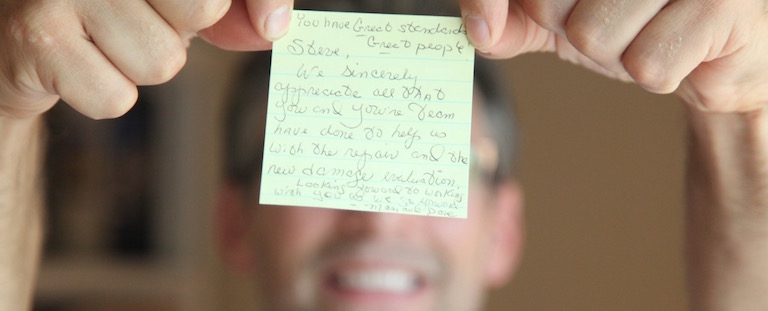 You have Great standards
Steve, Great people
We Sincerely
appreciate all that
you and you're Team
have done to help us
with the repair and the
new damage evaluation.
Looking forward to working
with you as we go forward.
- Mom and Dave